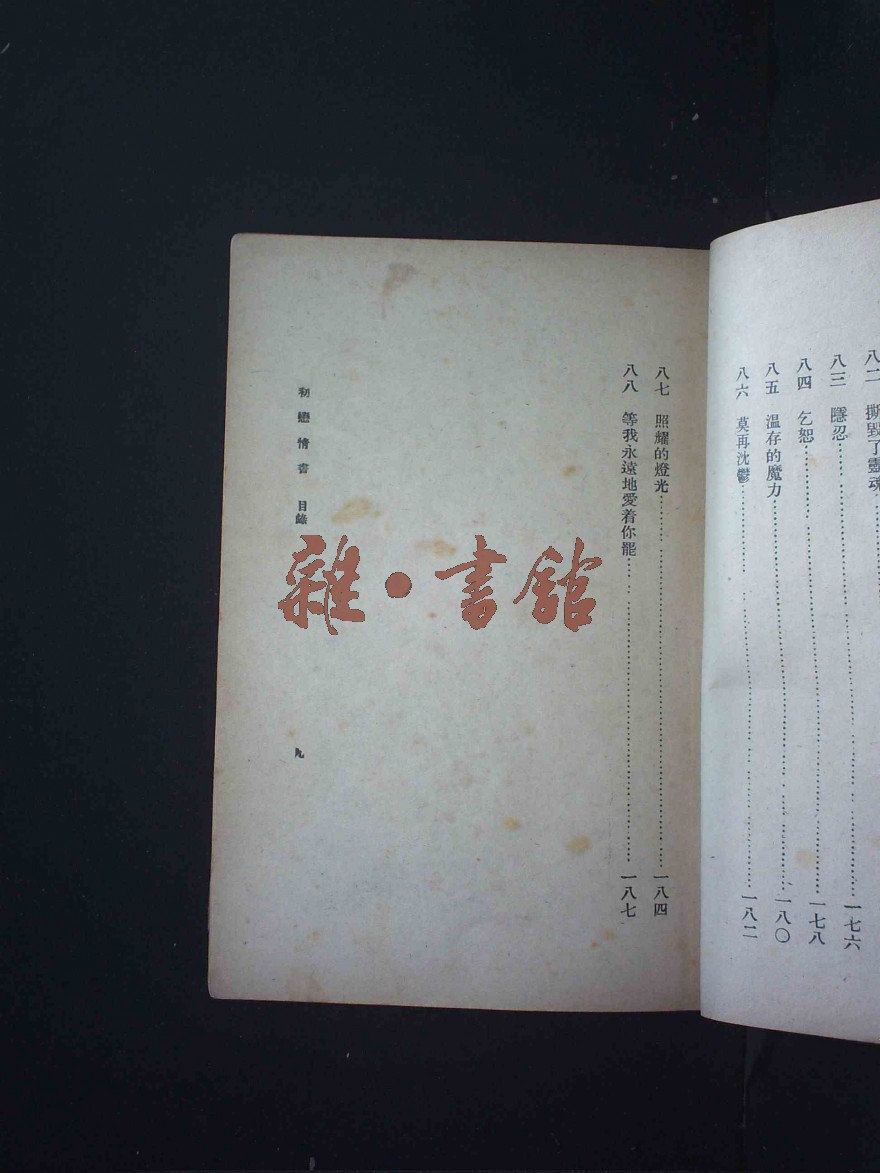 八二 撕毀了靈魂
八三 隱忍 一七六
八四 乞恕 一七八
八五 温存的魔力 一八〇
八六 莫再沈鬱 一八二
八七 照耀的燈光 一八四
八八 等我永遠地愛着你罷 一八七
初戀情書 目錄 九
雜·書館